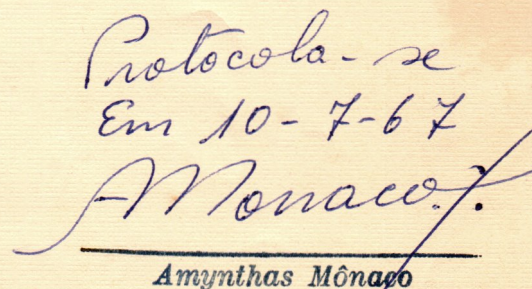 Protocola-se
Em 10-7-67
AMonaco.
Amynthas Mônaco